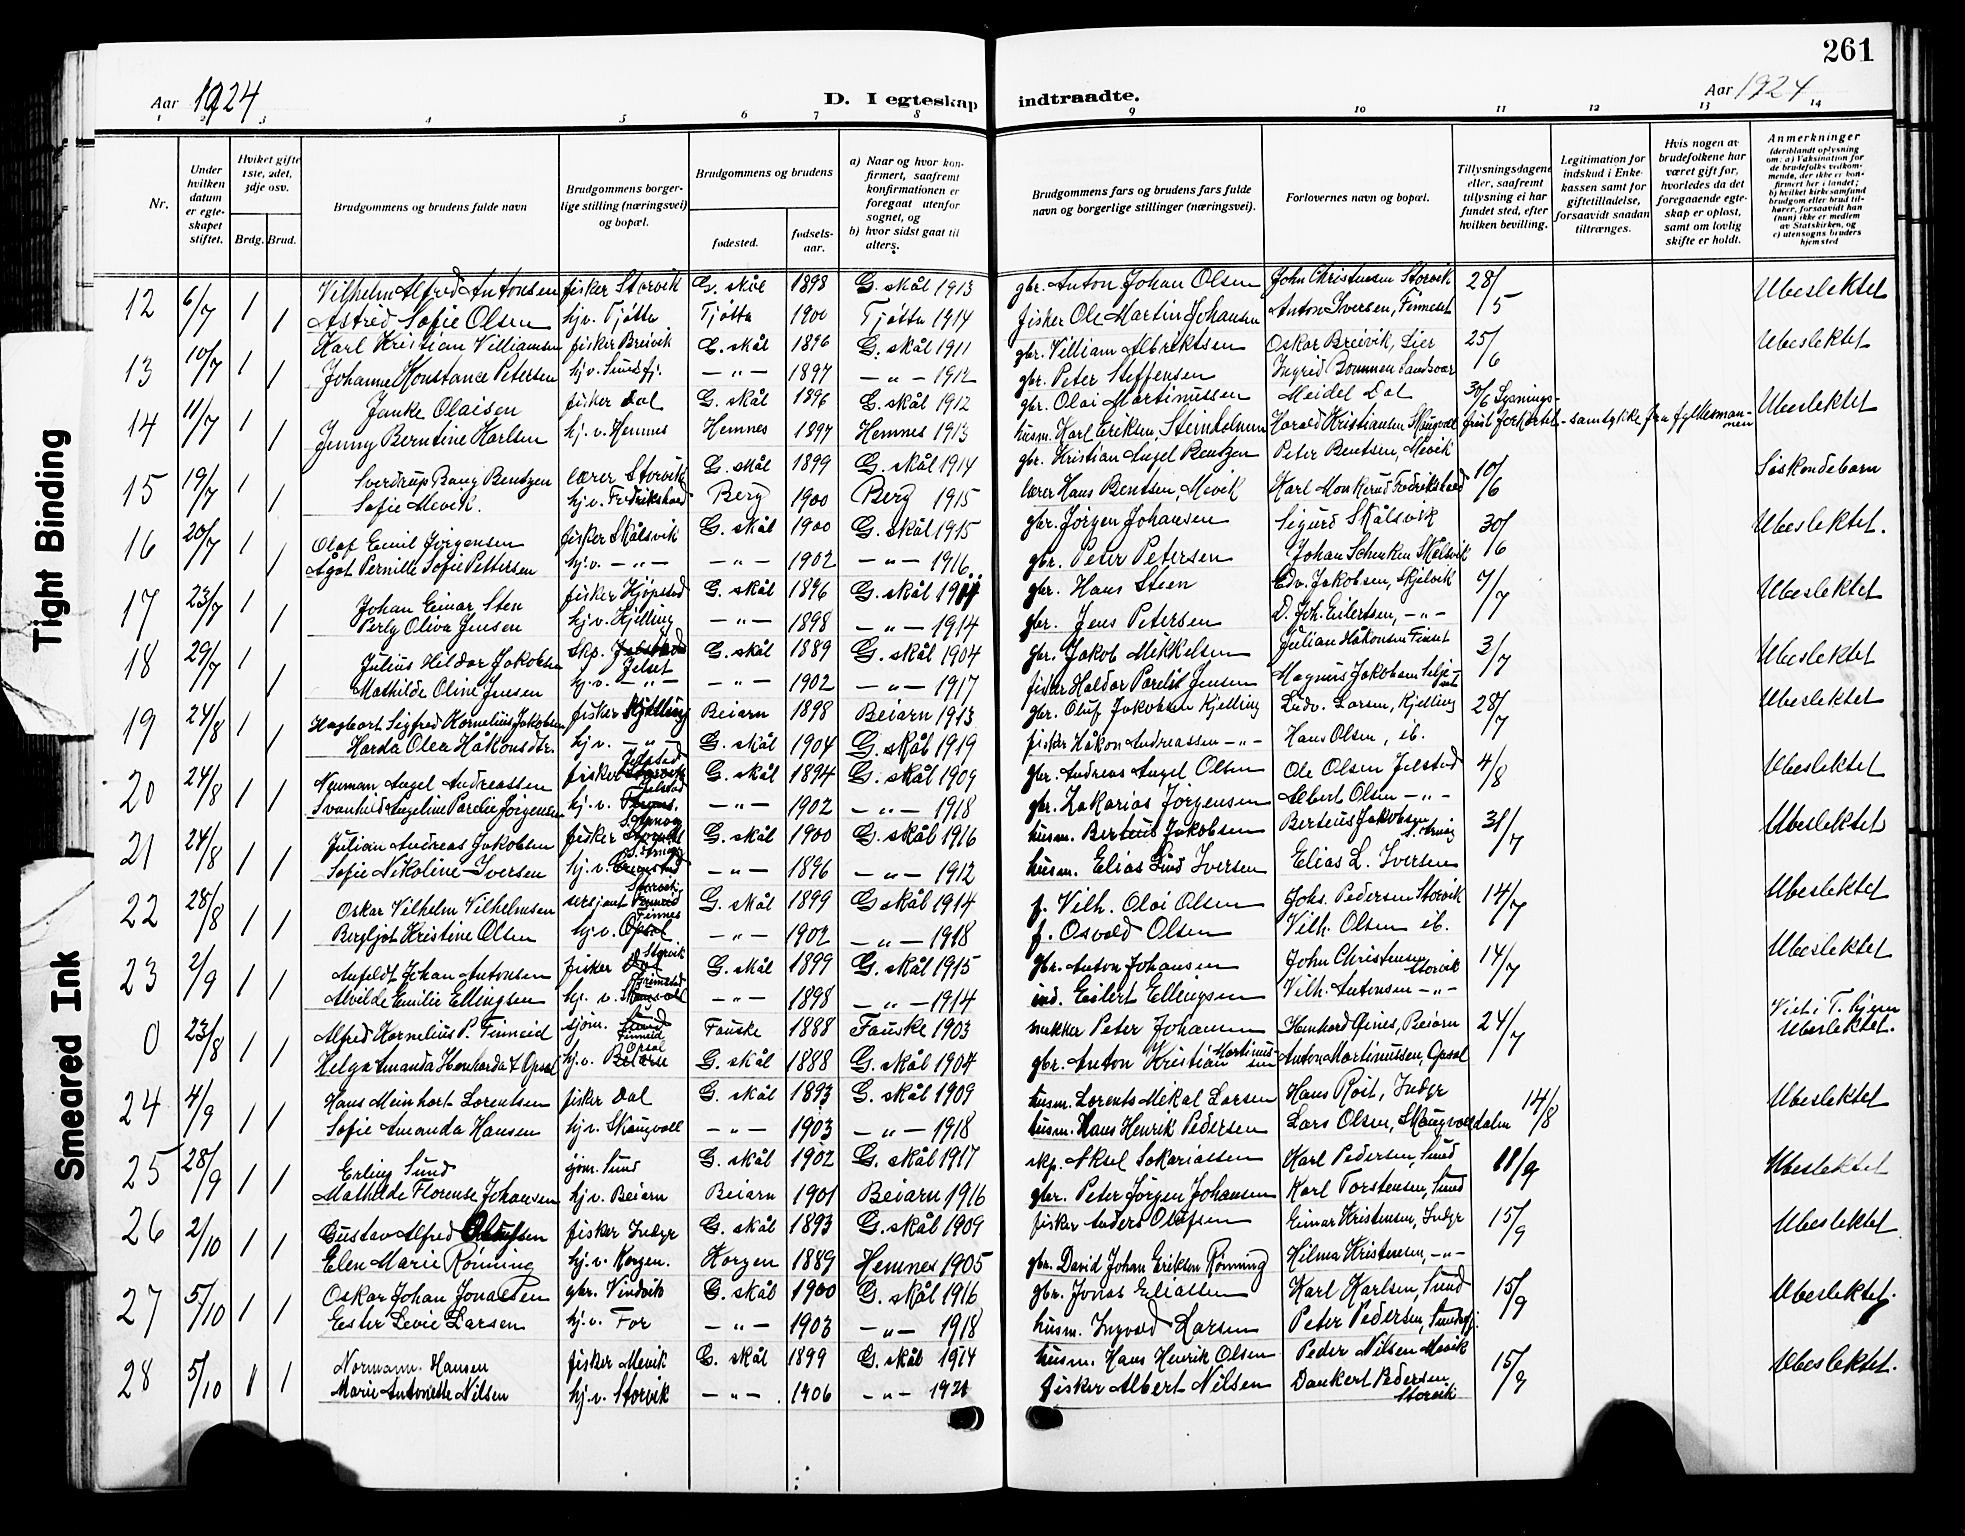 261
Aar 1924
D. I egteskap indtraadte.
Aar 1924
1 2 3 4 5 6 7 8 9 10 11 12 13 14
Nr.
Under hvilken datum er egte-skapet stiftet.
Hviket gifte 1ste, 2det, 3dje osv.
Brdg. Brud.
Brudgommens og brudens fulde navn
Brudgommens borger-lige stilling (næringsvei) og bopæl.
Brudgommens og brudens
fødested.
fødsels-aar.
a) Naar og hvor kon-firmert, saafremt konfirmationen er foregaat utenfor sognet, og
b) hvor sidst gaat til alters.
Brudgommens fars og brudens fars fulde navn og borgerlige stillinger (næringsvei).
Forlovernes navn og bopæl.
Tillysningsdagene eller, saafremt tillysning ei har fundet sted, efter hvilken bevilling.
Legitimation for indskud i Enke-kassen samt for giftetilladelse, forsaavidt saadan tiltrænges.
Hvis nogen av brudefolkene har været gift før, hvorledes da det foregaaende egte-skap er opløst, samt om lovlig skifte er holdt.
Anmerkninger (deriblandt oplysning om: a) Vaksination for de brudefolks vedkom-mende, der ikke er kon-firmert her i landet; b) hvilket kirkesamfund brudgom eller brud til-hører, forsaavidt han (hun) ikke er medlem av Statskirken, og c) utensogns bruders hjemsted
12 6/7 1 Vilhelm Alfred Antonsen fisker Storvik G. skål 1898 G. skål 1913 gbr. Anton Johan Olsen John Christensen Storvik 28/5 Ubeslektet
1 Astrid Sofie Olsen hj. v. Tjøtta Tjøtta 1900 Tjøtta 1914 fisker Ole Martin Johansen Anton Iversen, Finneset
13 10/7 1 Karl Kristian Villiamsen fisker Breivik G. skål 1896 G. skål 1911 gbr. Villiam Albriktsen Oskar Breivik, Lier 25/6 Ubeslektet
1 Johanne Konstance Petersen hj. v. Sundsfj. — „ — 1897 — „ — 1912 gbr. Peter Steffensen Ingrid Bommen Sandsvær
14 11/7 1 Janke Olaisen fisker Dal G. skål 1896 G. skål 1912 gbr. Olai Martinussen Meidel Dal 30/6 Lysnings- Ubeslektet
1 Jenny Berntine Karlsen hj. v. Hemnes Hemnes 1897 Hemnes 1913 husm. Karl Eriksen, Steinholmen Harald Kristiansen Skaugvoll frist forkortet - samtykke fra fylkesman-nen
15 19/7 1 Sverdrup Bang Bentzen lærer Storvik G. skål 1899 G. skål 1914 gbr. Kristian Angel Bentzen Peter Bentsen, Mevik 10/6 Søskendebarn
1 Sofie Mevik. hj. v. Fredrikshald Berg 1900 Berg 1915 lærer Hans Bentsen, Mevik Karl Monkerud Fredrikstad
16 20/7 1 Olaf Emil Jørgensen fisker Skålsvik G. skål 1900 G. skål 1915 gbr. Jørgen Johansen Sigurd Skålsvik 30/6 Ubeslektet.
1 Ågot Pernille Sofie Pettersen hj. v. — „ — — „ — 1902 — „ — 1916 gbr. Peter Petersen Johan Schenken Skålsvik
17 23/7 1 Johan Einar Sten fisker Kjøpstad G. skål 1896 G. skål 1911 gbr. Hans Steen Edv. Jakobsen, Skjelvik 7/7 Ubeslektet
1 Perly Oliva Jensen hj. v. Kjelling — „ — 1898 — „ — 1914 gbr. Jens Petersen D. Joh. Eilertsen, — „ —
18 29/7 1 Julius Hildor Jakobsen skp. Jelset G. skål 1889 G. skål 1904 gbr. Jakob Mikkelsen Julian Håkonsen Finset 3/7 Ubeslektet
1 Mathilde Oline Jensen hj. v. — „ — — „ — 1902 — „ — 1917 fisker Haldor Parelit Jensen Magnus Jakobsen Selje-set
19 24/8 1 Hagbart Sigfred Kornelius Jakobsen fisker Kjelling Beiarn 1898 Beiarn 1913 gbr. Oluf Jakobsen Kjelling Ludv. Larsen, Kjelling 28/7 Ubeslektet
1 Harda Olea Håkonsdtr. hj. v. — „ — G. skål 1904 G. skål 1919 fisker Håkon Andreassen — „ — Hans Olsen, ib.
20 24/8 1 Neumann Angel Andreassen fisker Jelstad G. skål 1894 G. skål 1909 gbr. Andreas Angel Olsen Ole Olsen Jelstad 4/8 Ubeslektet
1 Svanhild Angeline Parelie Jørgensen hj. v. Jelstad — „ — 1902 — „ — 1918 gbr. Zakarias Jørgensen Albert Olsen — „ —
21 24/8 1 Julian Andreas Jakobsen fisker S. Arnøy G. skål 1900 G. skål 1916 husm. Berteus Jakobsen Berteus Jakobsen S. Arnøy 31/7 Ubeslektet
1 Sofie Nikoline Iversen hj. v. S. Arnøy — „ — 1896 — „ — 1912 husm. Elias Lind Iversen Elias L. Iversen
22 28/8 1 Oskar Vilhelm Vilhelmsen sersjant Storvik G. skål 1899 G. skål 1914 f. Vilh. Olai Olsen Johs. Pedersen Storvik 14/7 Ubeslektet
1 Bergljot Kristine Olsen hj. v. Finnes — „ — 1902 — „ — 1918 f. Osvald Olsen Vilh. Olsen ib.
23 2/9 1 Anfeldt Johan Antonsen fisker Storvik G. skål 1899 G. skål 1915 gbr. Anton Johansen John Christensen Storvik 14/7 Ubeslektet
1 Alvilde Emilie Ellingsen hj. v. — „ — 1898 — „ — 1914 ind. Eilert Ellingsen Vilh. Antonsen — „ —
0 23/8 1 Alfred Kornelius P. Finneid sjøm. Finneid Fauske 1888 Fauske 1903 snekker Peter Johansen Henhard Øines, Beiarn 24/7 Viet i T. hjem Ubeslektet.
1 Helga Amanda Henharda A Opsal hj. v. Opsal G. skål 1888 G. skål 1904 gbr. Anton Kristian Martinus-sen Anton Martinussen, Opsal
24 4/9 1 Hans Meinhart Lorentsen fisker Dal G. skål 1893 G. skål 1909 husm. Lorents Mikal Larsen Hans Røst, Indyr 14/8 Ubeslektet
1 Sofie Amanda Hansen hj. v. Skaugvoll — „ — 1903 — „ — 1918 husm. Hans Henrik Pedersen Lars Olsen, Skaugvolldalen
25 28/9 1 Erling Sund sjøm. Sund G. skål 1902 G. skål 1917 skp. Aksel Sakariassen Karl Pedersen, Sund 11/9 Ubeslektet
1 Mathilde Florense Johansen hj. v. Beiarn Beiarn 1901 Beiarn 1916 gbr. Peter Jørgen Johansen Karl Torstensen, Sund
26 2/10 1 Gustav Alfred Olufsen fisker Indyr G. skål 1893 G. skål 1909 fisker Anders Olufsen Einar Kristensen, Indyr 15/9 Ubeslektet
1 Elen Marie Rønning hj. v. Korgen. Korgen 1889 Hemnes 1905 gbr. David Johan Eriksen Rønning Hilma Kristensen, — „ —
27 5/10 1 Oskar Johan Jonassen gbr. Vindvik G. skål 1900 G. skål 1916 gbr. Jonas Eliassen Karl Karlsen, Sund 15/9 Ubeslektet.
1 Ester Levie Larsen hj. v. For — „ — 1903 — „ — 1918 husm. Ingvald Larsen Peter Pedersen, Sundsfj.
28 5/10 1 Normann Hansen fisker Mevik G. skål 1899 G. skål 1914 husm. Hans Henrik Olsen Peder Nilsen Mevik 15/9 Ubeslektet.
1 Marie Antonette Nilsen hj. v. Storvik — „ — 1906 — „ — 1921 fisker Albert Nilsen Dankert Pedersen Storvik
Tight Binding
Smeared Ink